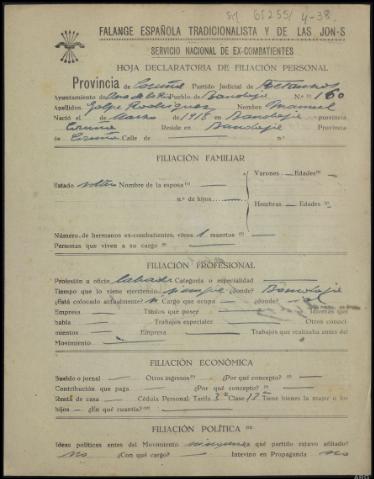 65255/4-38
FALANGE ESPAÑOLA TRADICIONALISTA Y DE LAS JON-S
SERVICIO NACIONAL DE EX-COMBATIENTES
HOJA DECLARATORIA DE FILIACIÓN PERSONAL
Provincia de Coruña Partido Judicial de Betanzos
Ayuntamiento de Pueblo de Bandoja N.º 160
Apellidos Golpe Rodriguez Nombre Manuel
Nació el de Marzo de 1918 en Bandoja provincia
Coruña Reside en Bandoja Provincia
de Coruña Calle de n.º
FILIACIÓN FAMILIAR
Varones Edades
Estado soltero Nombre de la esposa
n.º de hijos
Hembras Edades
Número de hermanos ex-combatientes, vivos 1 muertos
Personas que viven a su cargo
FILIACIÓN PROFESIONAL
Profesión u oficio Labrador Categoría o especialidad
Tiempo que lo viene ejerciendo siempre ¿dónde? Bandoja
¿Está colocado actualmente? Cargo que ocupa ¿dónde?
Empresa Títulos que posee Idiomas que
habla Trabajos especiales Otros conoci-
mientos Empresa Trabajos que realizaba antes del
Movimiento
FILIACIÓN ECONÓMICA
Sueldo o jornal Otros ingresos ¿Por qué concepto?
Contribución que paga ¿Por qué concepto?
Renta de casa Cédula Personal Tarifa 3ª Clase 12ª Tiene bienes la mujer o los
hijos ¿En qué cuantía?
FILIACIÓN POLÍTICA
Ideas políticas antes del Movimiento ningunas qué partido estuvo afiliado?
no ¿Con qué cargo? Intervino en Propaganda no